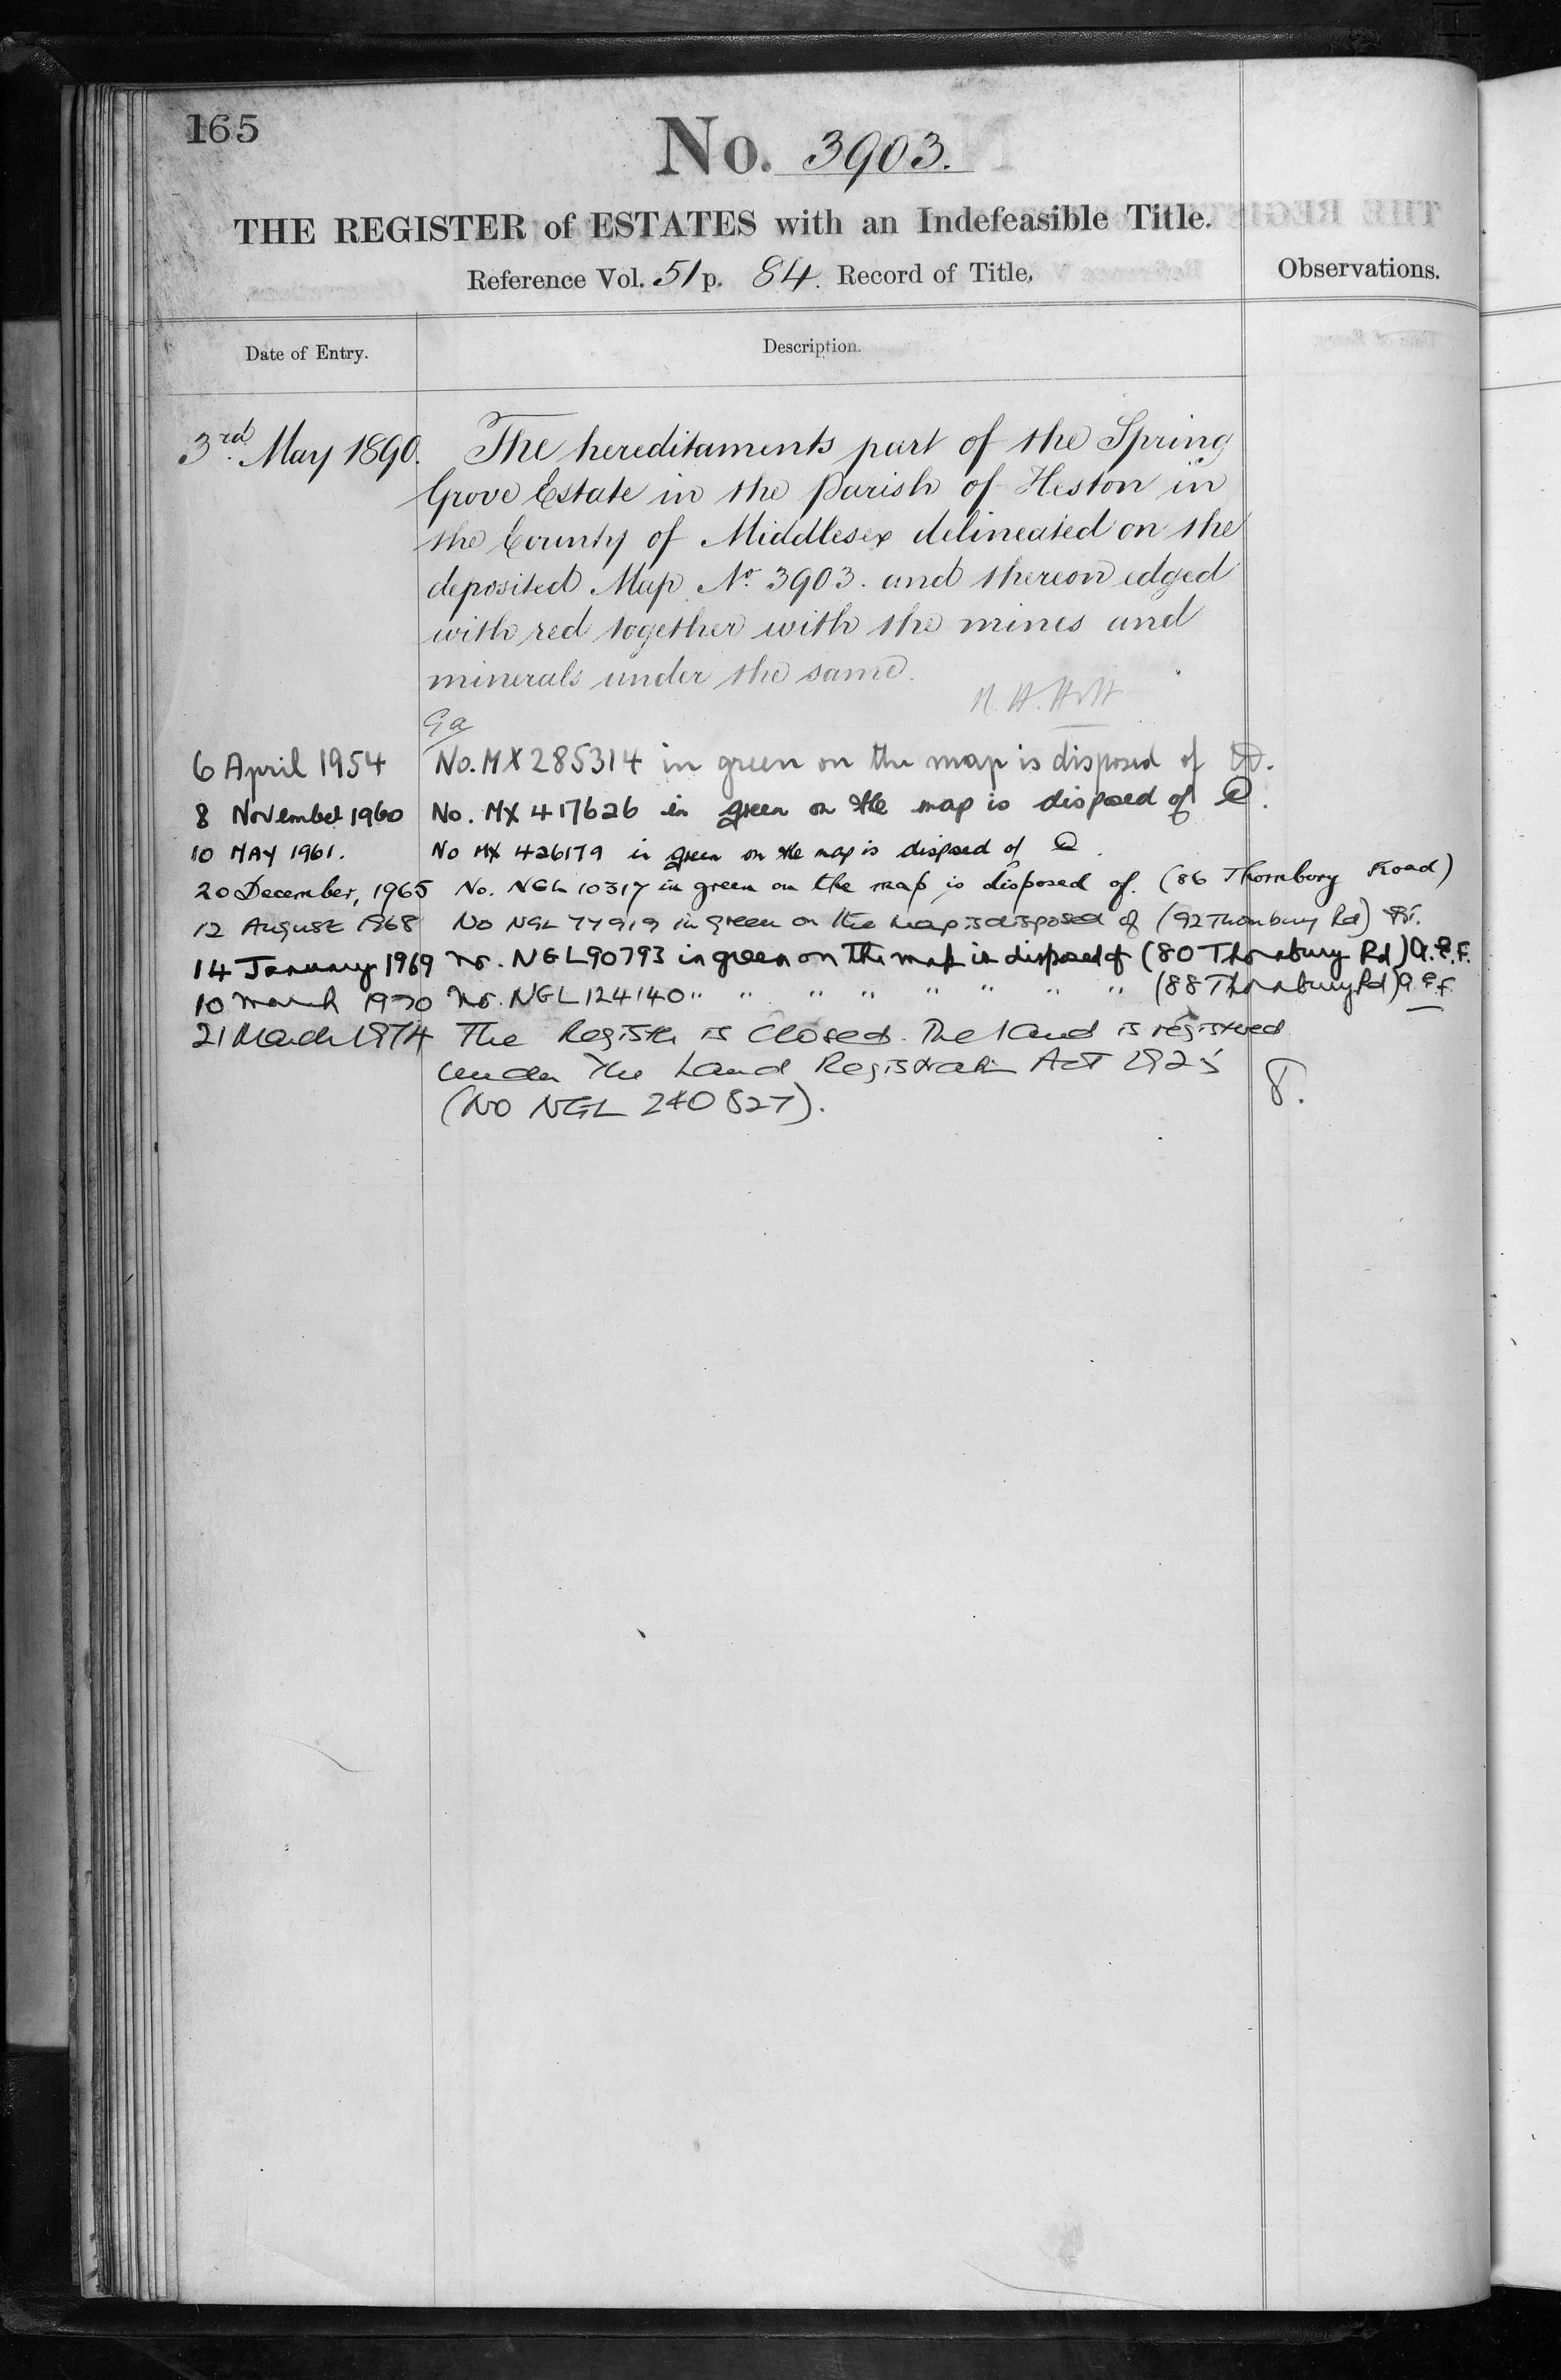 165
No. 3903.
THE REGISTER of ESTATES with an Indefeasible Title.
Reference Vol. 51 p. 84. Record of Title.
Observations.
Date of Entry.
Description.
3rd. May 1890. The hereditaments part of the Spring
Grove Estate in the Parish of Heston in
the County of Middlesex delineated on the
deposited Map No. 3903. and thereon edged
with red together with the mines and
minerals under the same.
6 April 1954 No. MX 285314 in green on the map is disposed of
8 November 1960 No. MX 417626 in green on the map is disposed of
10 MAY 1961. No MX 426179 in green on the map is disposed of
20 December, 1965 No. NGL 10317 in green on the map is disposed of. (86 Thornbury Road)
12 August 1968 No NGL 77919 in green on the map is disposed of (92 Thornbury Rd)
14 January 1969 No. NGL 90793 in green on the map is disposed of (80 Thornbury Rd) A.E.F.
10 March 1970 No. NGL 124140 " " " " " " " " (88 Thornbury Rd) A.E.F.
21 March 1974 The Register is Closed. The land is registered
under the Land Registration Act 1925
(No NGL 240827).